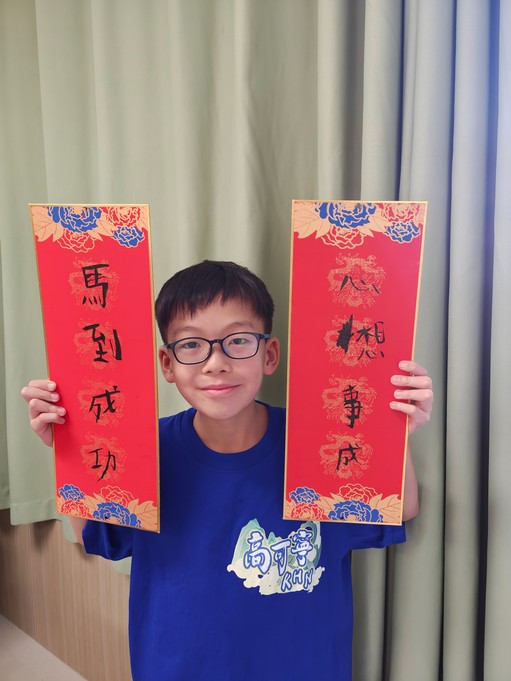 馬到成功
心想事成
高可寧
KHN